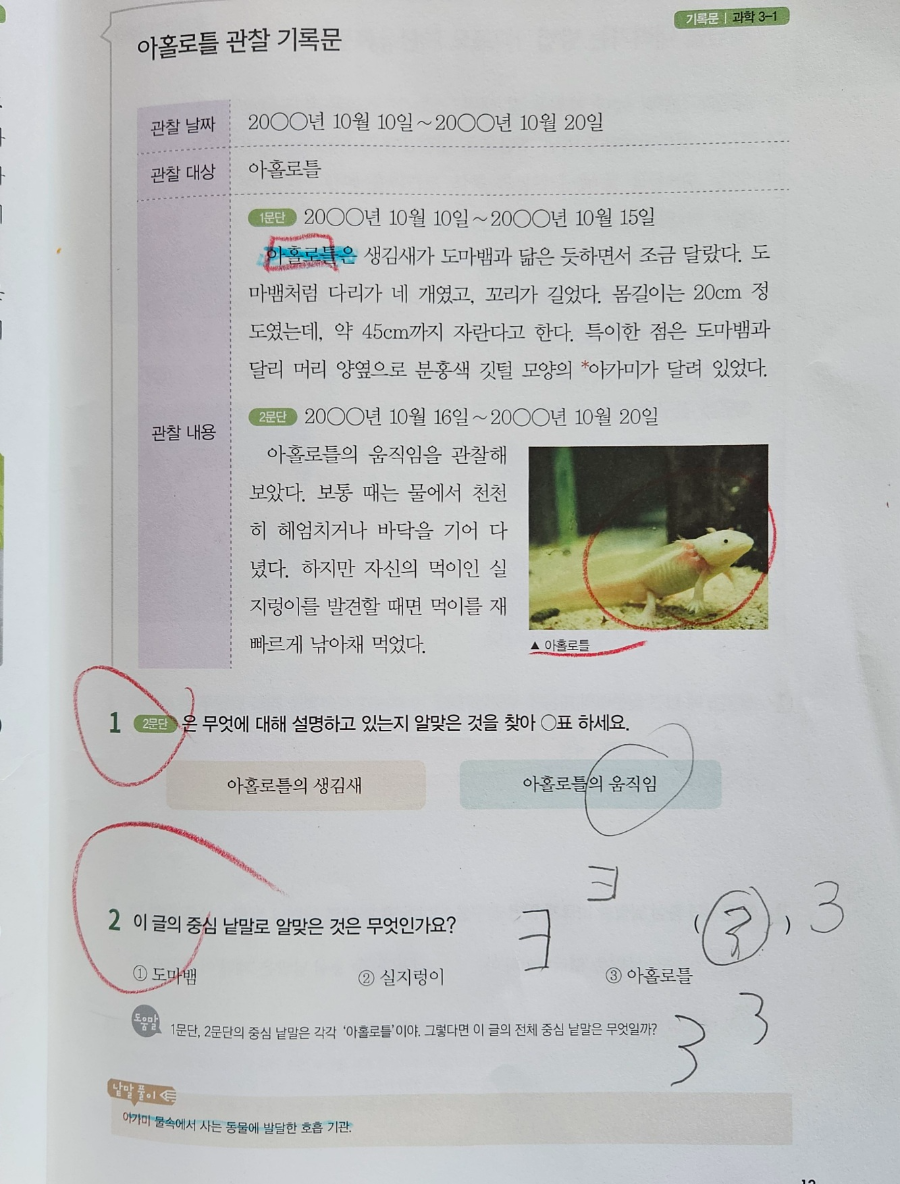 기록문 | 과학 3-1
아홀로틀 관찰 기록문
관찰 날짜 20○○년 10월 10일~20○○년 10월 20일
관찰 대상 아홀로틀
관찰 내용
1문단 20○○년 10월 10일~20○○년 10월 15일
아홀로틀은 생김새가 도마뱀과 닮은 듯하면서 조금 달랐다. 도
마뱀처럼 다리가 네 개였고, 꼬리가 길었다. 몸길이는 20cm 정
도였는데, 약 45cm까지 자란다고 한다. 특이한 점은 도마뱀과
달리 머리 양옆으로 분홍색 깃털 모양의 *아가미가 달려 있었다.
2문단 20○○년 10월 16일~20○○년 10월 20일
아홀로틀의 움직임을 관찰해
보았다. 보통 때는 물에서 천천
히 헤엄치거나 바닥을 기어 다
녔다. 하지만 자신의 먹이인 실
지렁이를 발견할 때면 먹이를 재
빠르게 낚아채 먹었다.
▲ 아홀로틀
1 2문단 은 무엇에 대해 설명하고 있는지 알맞은 것을 찾아 ○표 하세요.
아홀로틀의 생김새 아홀로틀의 움직임
2 이 글의 중심 낱말로 알맞은 것은 무엇인가요? ( 3 ) 3
① 도마뱀 ② 실지렁이 ③ 아홀로틀
도움말 1문단, 2문단의 중심 낱말은 각각 '아홀로틀'이야. 그렇다면 이 글의 전체 중심 낱말은 무엇일까?
3 3
낱말 풀이
아가미 물속에서 사는 동물에 발달한 호흡 기관.